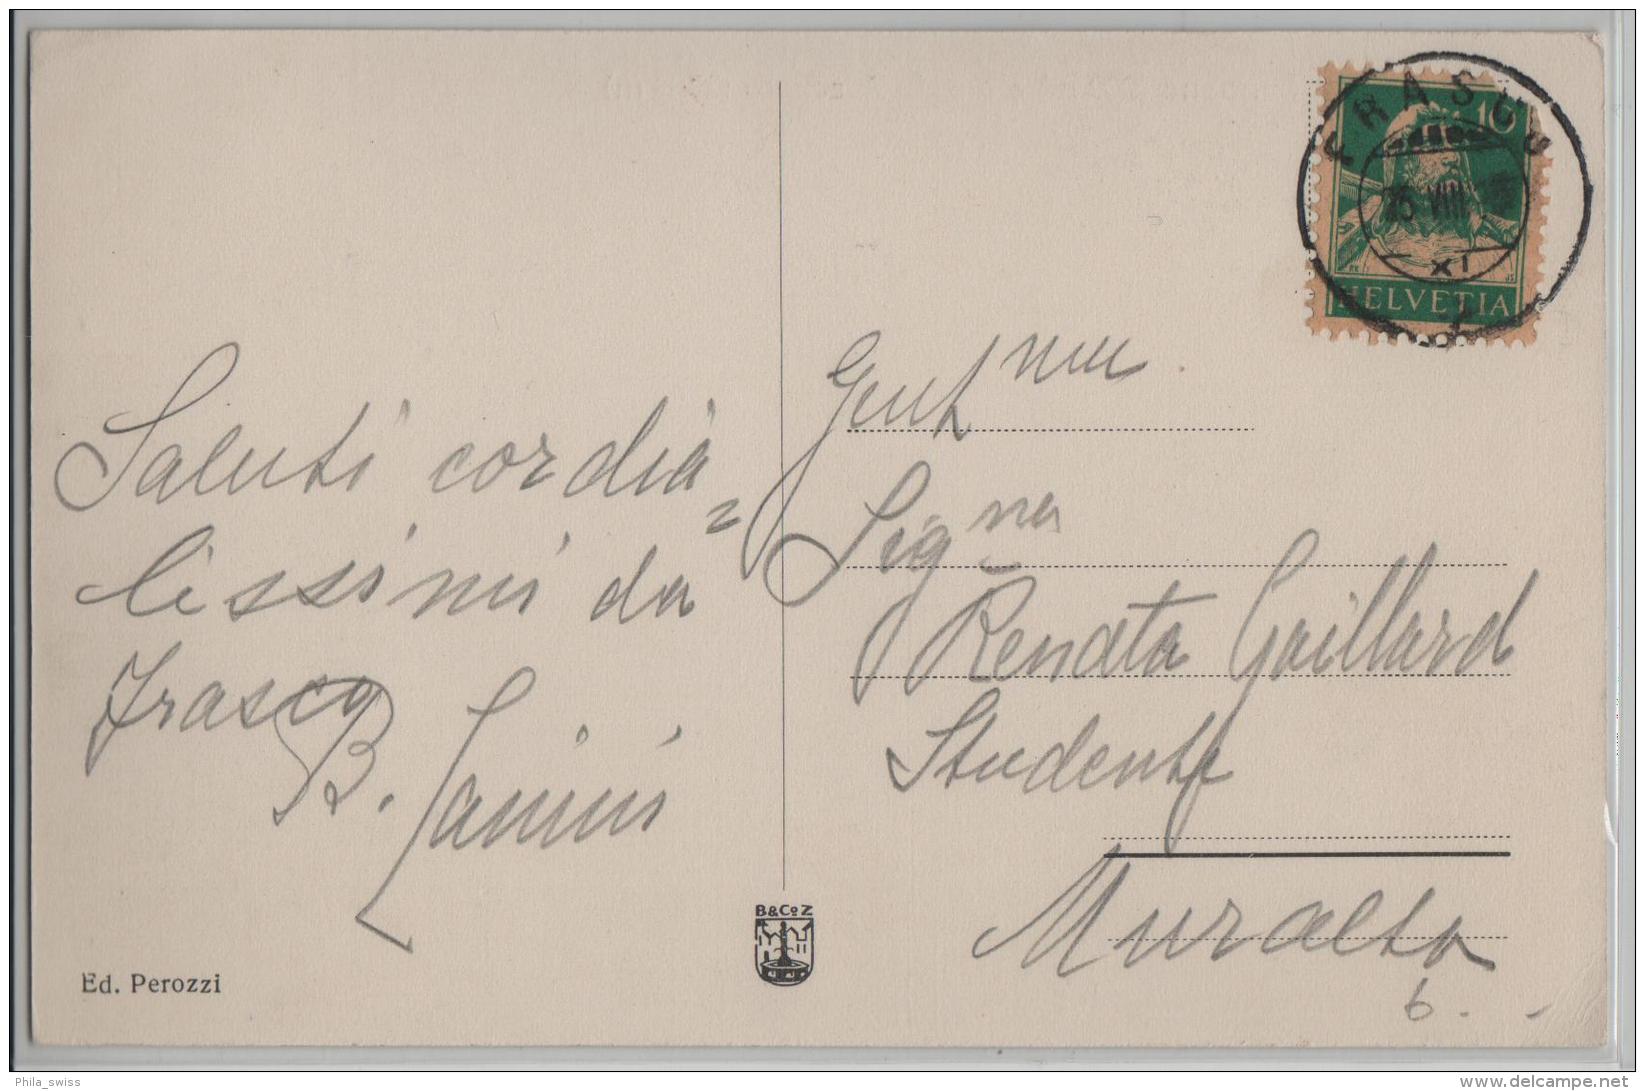 Saluti cordia=
lissimi da
Frasco
B.
Gent.ma
Sig.na
Renata Gaillard
Studente
Muralto
6. -
FRASCO
25 VIII
XI
10
HELVETIA
B&CoZ
Ed. Perozzi
Phila_swiss
www.delcampe.net